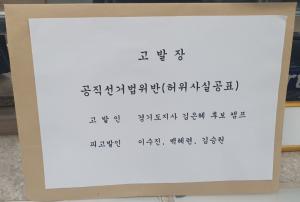 고 발 장
공직선거법위반(허위사실공표)
고 발 인 경기도지사 김은혜 후보 캠프
피고발인 이수진, 백혜련, 김승원